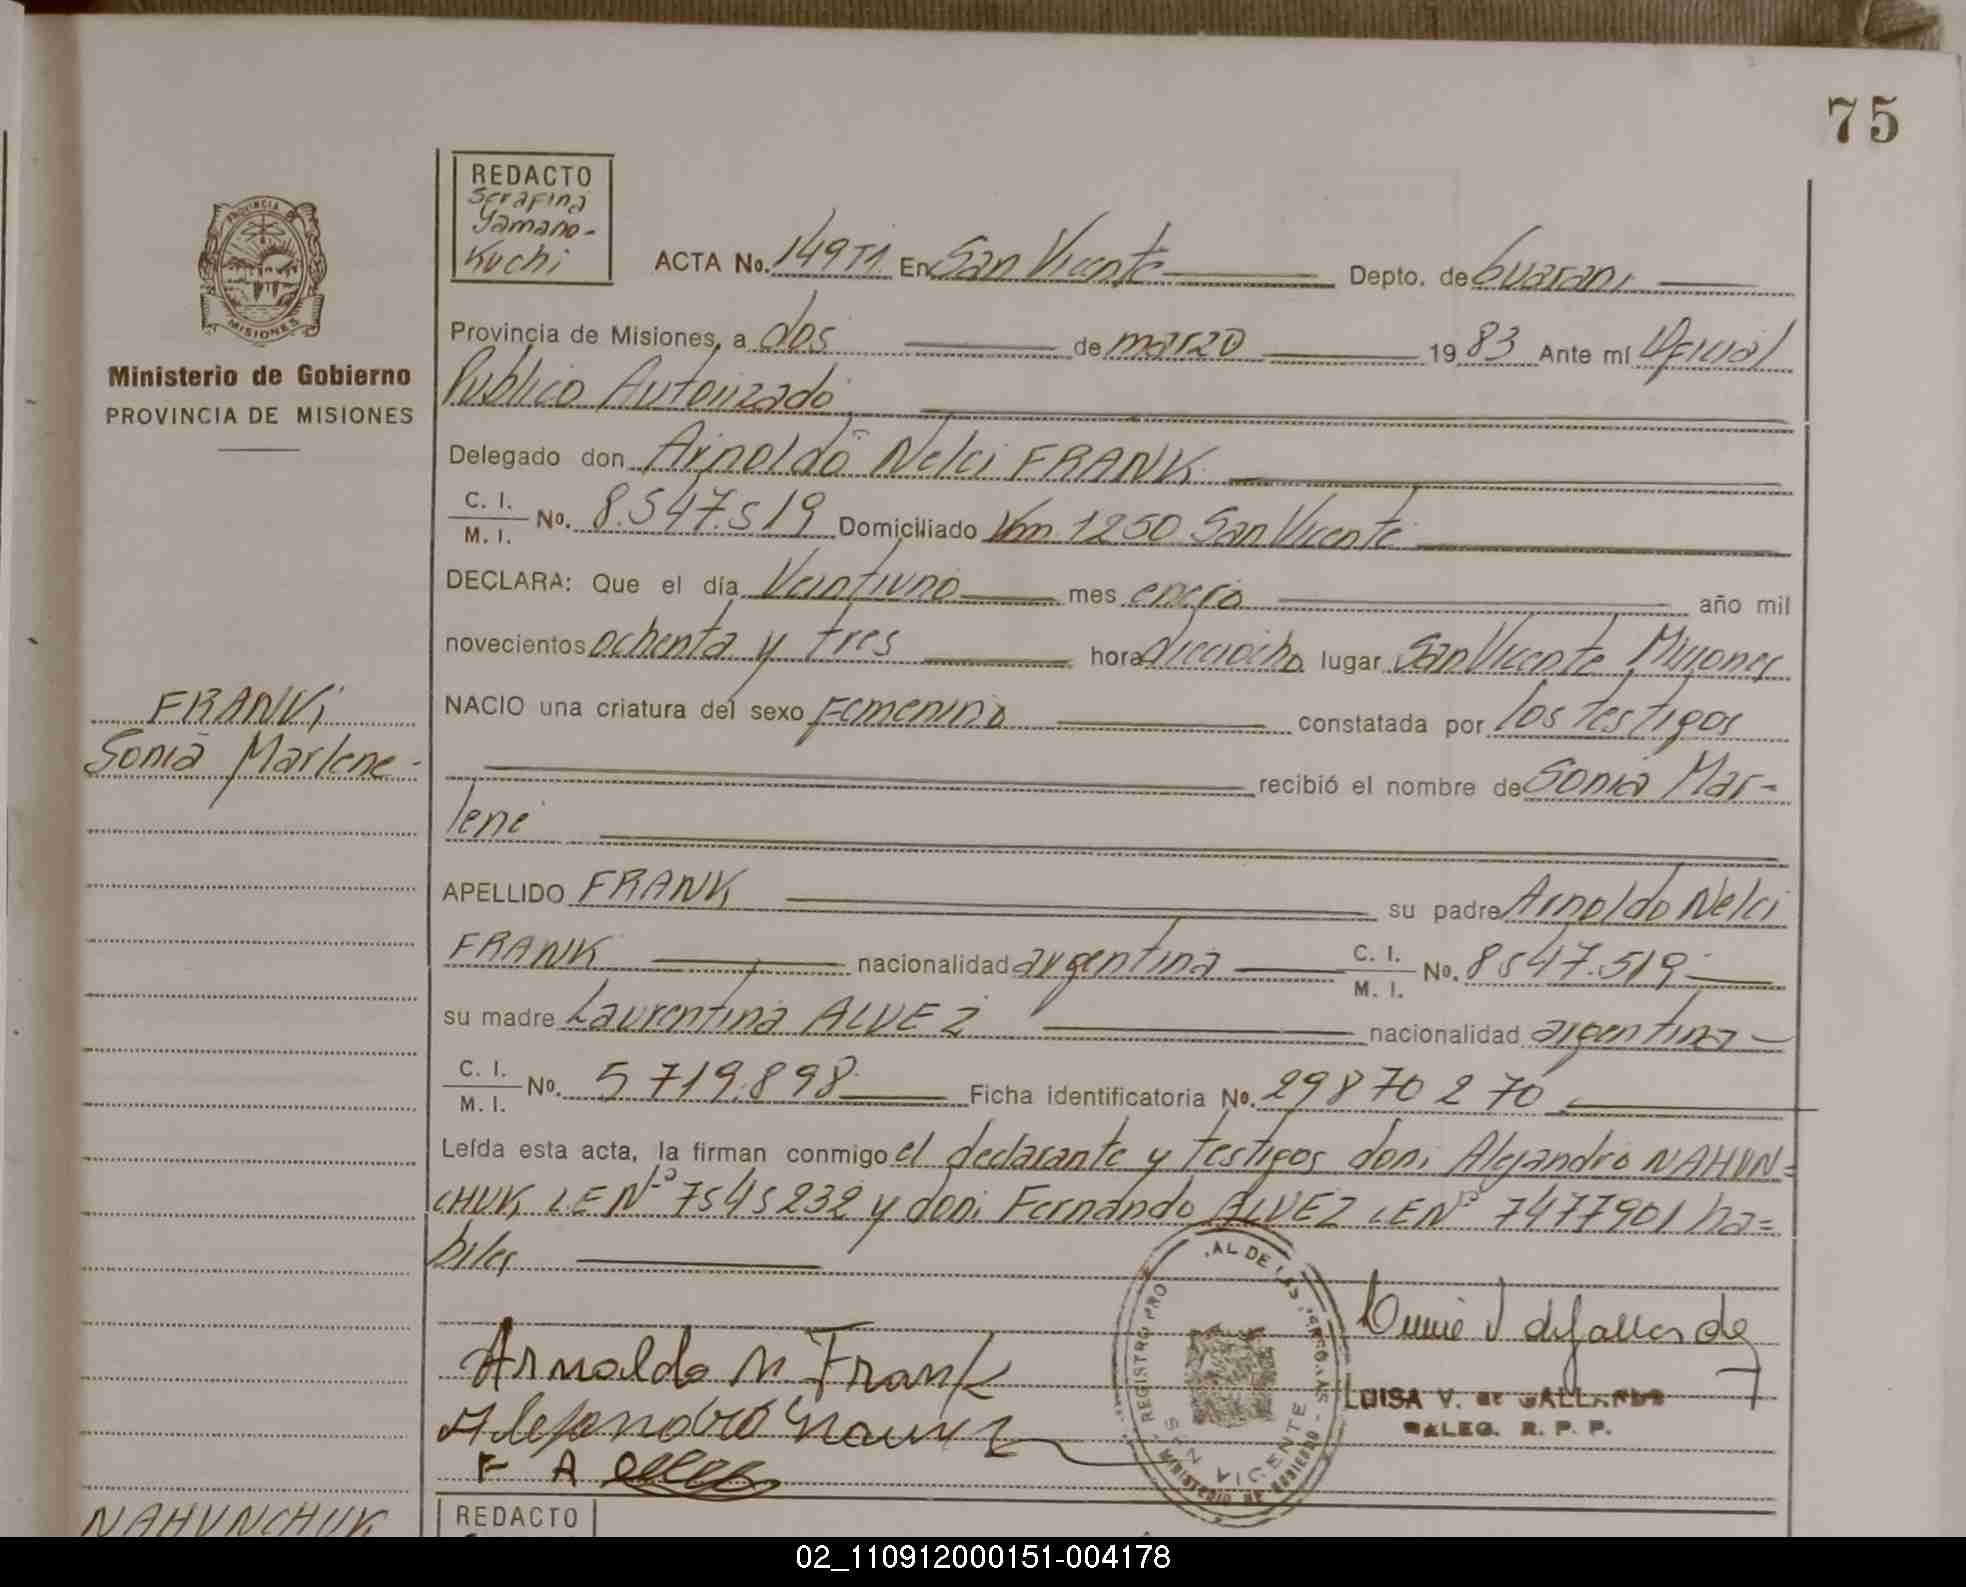 75
REDACTO
Serafina
Yamano-
Kuchi
ACTA No. 149 T1. En San Vicente Depto. de Guarani
PROVINCIA DE
MISIONES
Ministerio de Gobierno
PROVINCIA DE MISIONES
Provincia de Misiones, a dos de marzo 19 83 Ante mí Oficial
Publico Autorizado
Delegado don Arnoldo Nelci FRANK
C. I.
M. I.
No. 8.547.519 Domiciliado Km 1250 San Vicente
DECLARA: Que el día Veintiuno mes enero año mil
novecientos ochenta y tres hora dieciocho lugar San Vicente Misiones
FRANK;
Sonia Marlene -
NACIO una criatura del sexo Femenino constatada por los testigos
recibió el nombre de Sonia Mar-
lene
APELLIDO FRANK su padre Arnoldo Nelci
FRANK nacionalidad argentina C. I.
M. I. No. 8547.519-
su madre Laurentina ALVEZ nacionalidad argentina -
C. I.
M. I.
No. 5719.898 Ficha identificatoria No. 29870270
Leída esta acta, la firman conmigo el declarante y testigos don: Alejandro NAHUN=
CHUK LE Nº 7545232 y don: Fernando ALVEZ LE Nº 7477901 ha=
biles
Arnoldo N Frank
Alejandro
F A
LUISA V. DE GALLARDO
DALEG. R. P. P.
REGISTRO PRO AL DE LAS PERSONAS
SAN VICENTE
MINISTERIO DE GOBIERNO
NAHUNCHUK
REDACTO
02_110912000151-004178